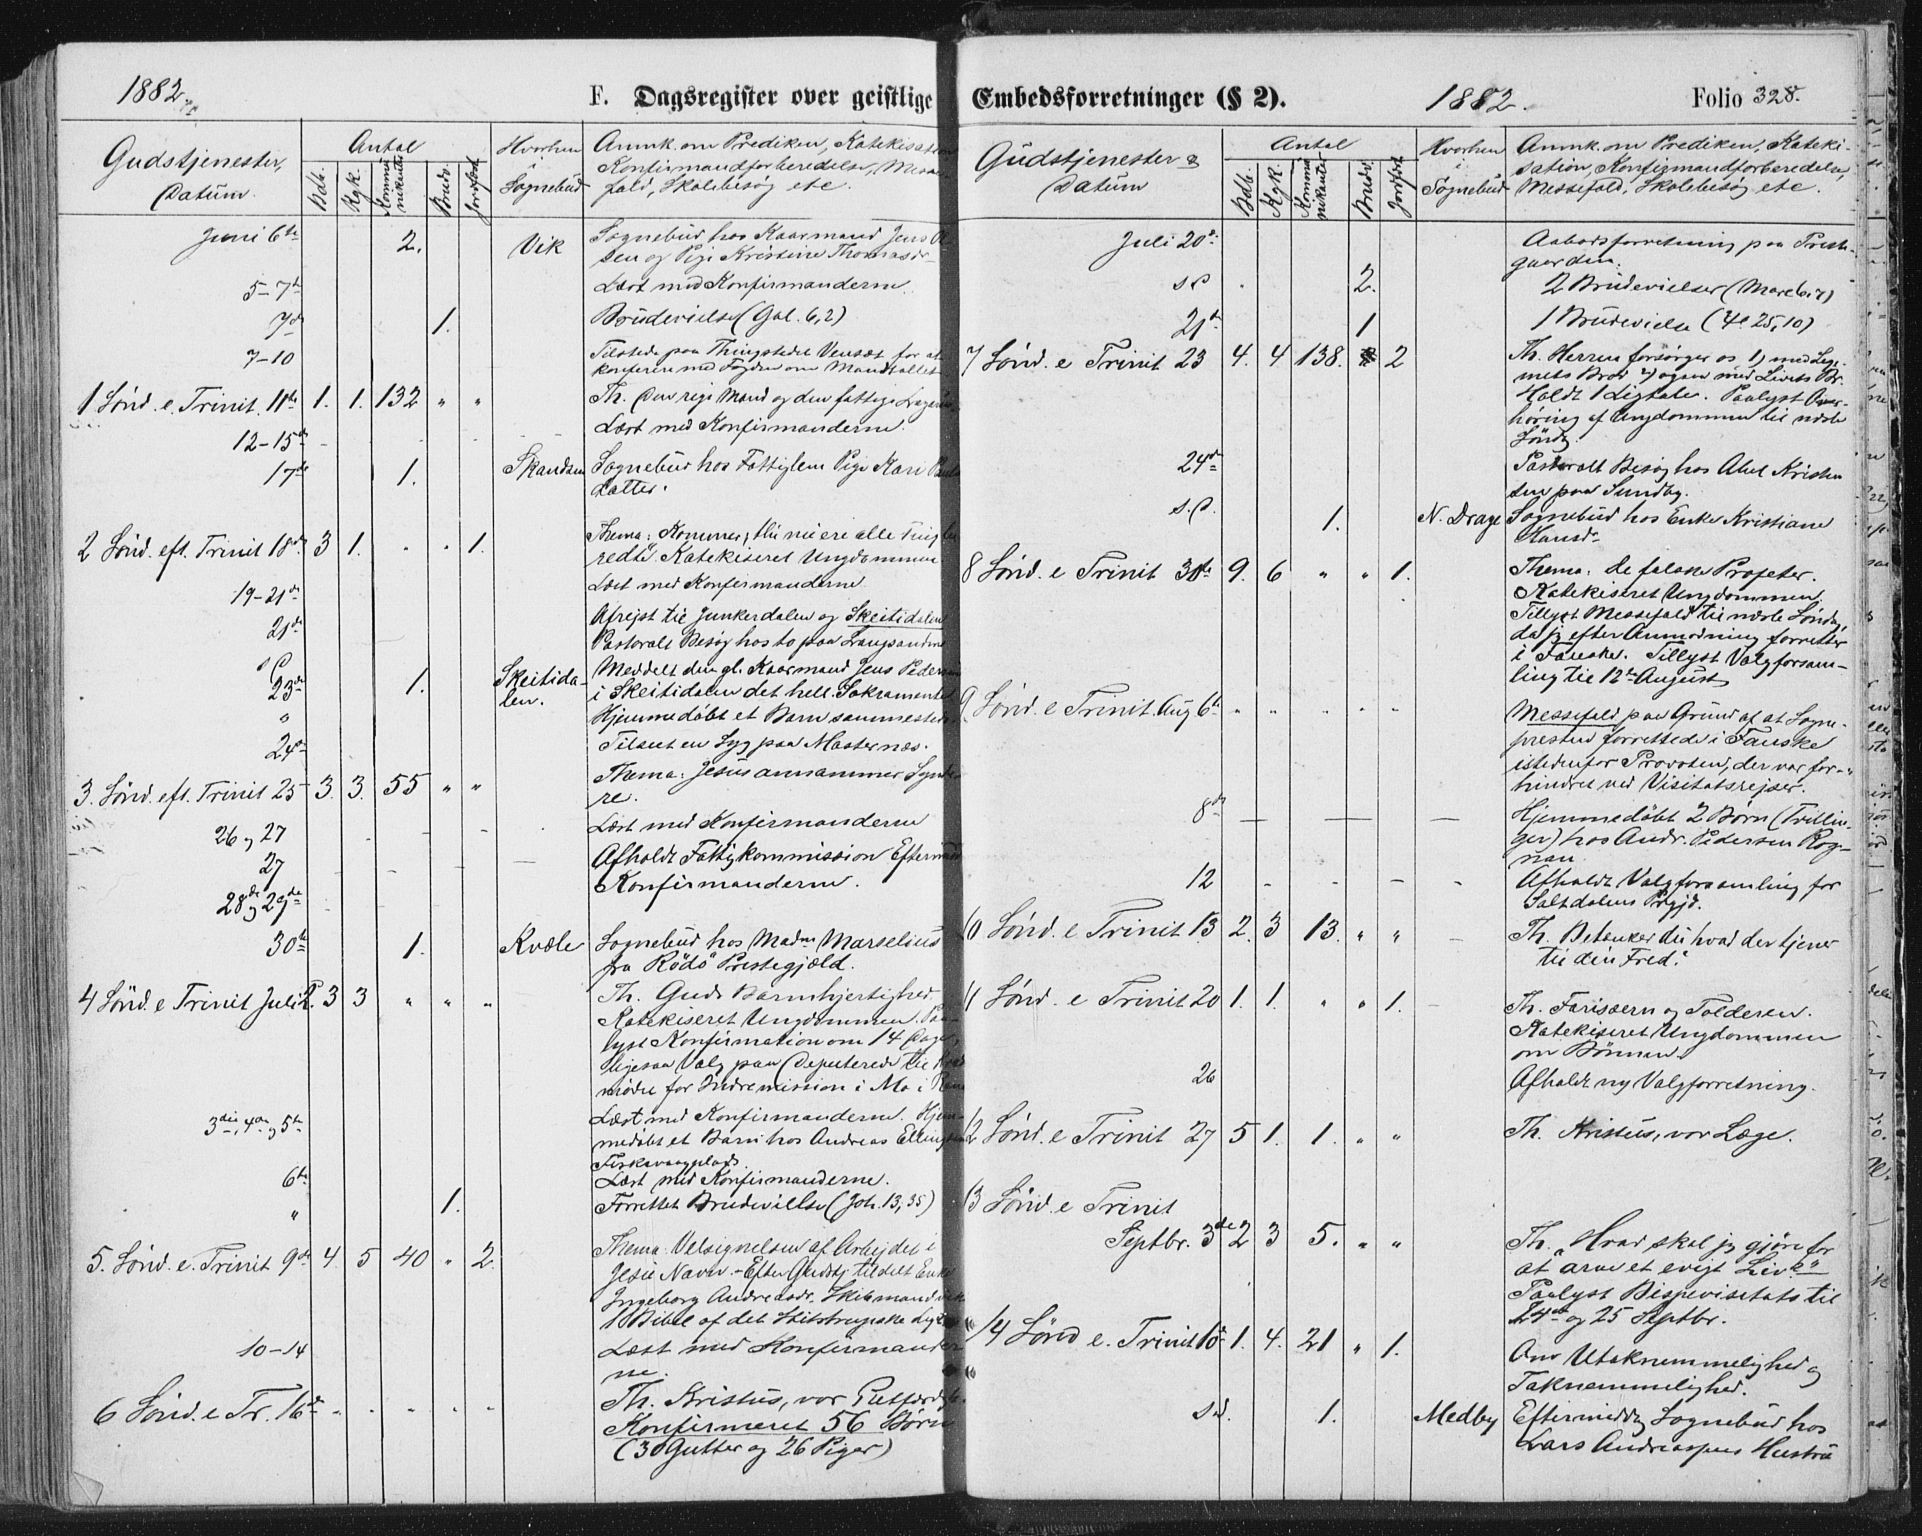 1882
F. Dagsregister over geistlige
Gudstjenester,
Datum.
Antal
Hvorhen
i
Sognebud
Anmk. om Prediken, Katekisation
Konfirmandforberedelse, Messe-
fald, Skolebesøg etc.
Db. Kgk. Kommunikanter Brudv. Jordfæst
Juni 6te 2. Vik Sognebud hos Kaarmand Jens Ol-
sen og Pige Kristine Thomasdr.
5-7de Læst med Konfirmanderne.
7de 1. Brudevielse (Gal. 6,2)
7-10 Tilstede paa Thingstedet Vensæt for at
konferere med Fogden om Mandtallet
1 Sønd. e. Trinit. 11te 1. 1. 132 " " Th. Den rige Mand og den fattige Lazarus.
12-15de Læst med Konfirmanderne.
17de 1. Skandsen Sognebud hos Fattiglem Pige Kari
Datter.
2 Sønd. eft. Trinit 18de 3 1. " " 1. Thema: Kommer, thi nu ere alle Ting be
redte. Katekiseret Ungdommen
19-21de Læst med Konfirmanderne
21de Afrejst til Junkerdalen og Skeitidalen
Pastoralt Besøg hos to paa Langsandene
s. D.
23de 1. Skeitida-
len. Meddelt den gl. Kaarmand Jens Pedersen
i Skeitidalen det hell. Sakramentet
" Hjemmedøbt et Barn sammesteds.
24de Tilseet en Syg paa Masternes.
3. Sønd. eft. Trinit 25 3. 3. 55 " " Thema: Jesus annammer Synde-
re.
26 og 27 Læst med Konfirmanderne
27 Afholdt Fattigkommission Efterm
28de og 29de Konfirmanderne.
30te 1. Kvæle Sognebud hos Madm Marselius
fra Rödö Prestegjæld.
4 Sønd. e Trinit Juli 2. 3 3 " " " Th. Guds Barmhjertighed
Katekiseret Ungdommen. Paa-
lyst Konfirmation om 14 Dage,
ligesaa Valg paa Deputerede til Kreds
møde for Indremission i Mo i Rana
3die, 4de og 5te Læst med Konfirmanderne. Hjem-
medøbt et Barn hos Andreas Ellingsen
Fiskevaagplads.
6te Læst med Konfirmanderne.
" 1. Forrettet Brudevielse (Joh. 13, 35)
5. Sønd. e. Trinit 9de 4. 5 40 " 2. Thema: Velsignelsen af Arbejdet i
Jesu Navn. - Efter Gudstj. tildelt Enke
Ingeborg Andreasdr. Skibmandvik
1 Bibel af det
10-14 Læst med Konfirmander
ne.
6 Sønd. e Tr. 16de " " " " " Th. Kristus, vor Retfærdighed.
Konfirmeret 56 Børn
(30 Gutter og 26 Piger)
Embedsforretninger (§ 2).
1882.
Folio 328.
Gudstjenester &
Datum
Antal
Hvorhen
i
Sognebud
Anmk. om Prediken, Kateki-
sation, Konfirmandforberedelse,
Messefald, Skolebesøg etc.
Db. Kgk. Kommunikanter Brudv. Jordfst
Juli 20de Aabodsforretning paa Preste-
gaarden.
s D 2. 2 Brudevielser
21de 1 1 Brudevielse (4e 25,10)
7 Sønd. e Trinit 23 4. 4 138. 2 Th. Herren forsørger os 1) med Lege-
mets Brød 2) ogsaa med Livets Br.
Holdt 1 Ligtale. Paalyst Over-
høring af Ungdommen til næste
Søndg.
24de Pastoralt Besøg hos Abel Kristen
sen paa Sundby.
s. D. 1. N. Drage Sognebud hos Enke Kristiane
Hansdr
8 Sønd. e Trinit 30te 9. 6 " " 1. Thema: De falske Profeter.
Katekiseret Ungdommen.
Tillyst Messefald til næste Søndag,
da jeg efter Anmodning forretter
i Fauske. Tillyst Valgforsam-
ling til 12te August
9 Sønd. e Trinit. Aug 6te " " " " " Messefald paa Grund af at Sogne-
presten forrettede i Fauske
istedenfor Provsten, der var for-
hindret ved Visitatsrejser.
8de Hjemmedøbt 2 Børn (Tvillin-
ger) hos Andr. Pedersen Rog-
nan
12 Afholdt Valgforsamling for
Saltdalens Prgjd.
10 Sønd. e Trinit 13 2. 3 13. " " Th. Betænker du hvad der tjener
til din Fred.
11 Sønd. e Trinit 20 1. 1. " " 1. Th. Farisæern og Tolderen.
Katekiseret Ungdommen
om Bønnen.
26 Afholdt ny Valgforretning.
12 Sønd. e Trinit 27 5 1. 1. " " Th. Kristus, vor Læge.
13 Sønd. e Trinit
Septbr. 3de 2 3 5. " " Th. "Hvad skal jeg gjøre for
at arve et evigt Liv?"
Paalyst Bispevisitats til
24de og 25 Septbr.
14 Sønd e. Trinit 10de 1. 4. 21 " 1. Om Utaknemmelighed og
Taknemmelighed.
s d. 1. Medby Eftermiddg Sognebud hos
Lars Andreassens Hustru